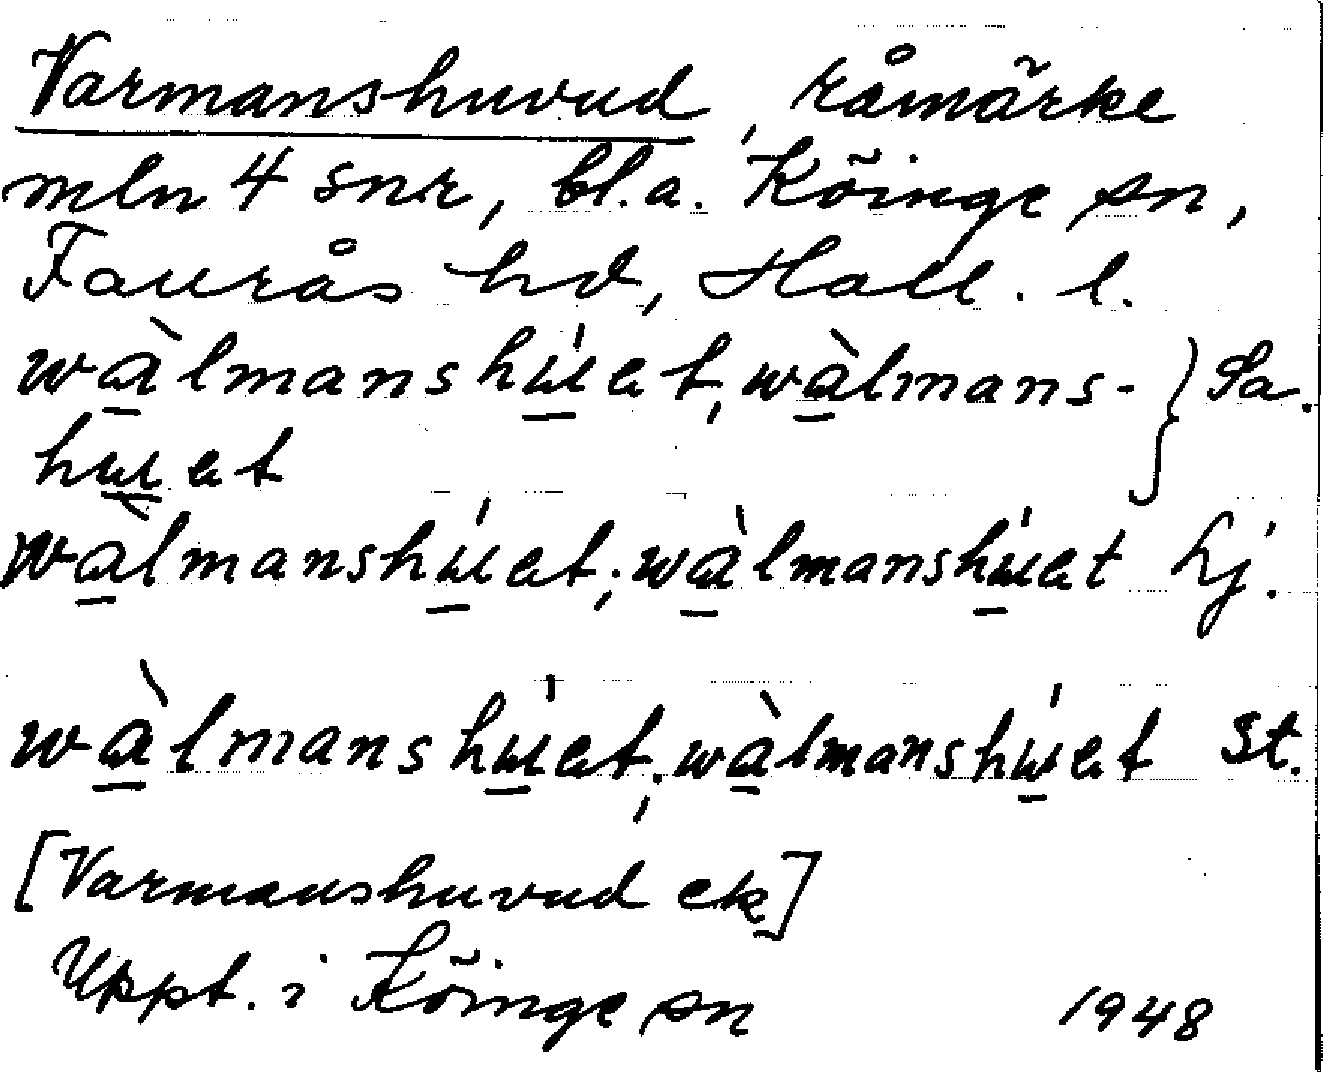 Varmanshuvud, råmärke
mln 4 snr, bl.a. Köinge sn,
Faurås hd, Hall. l.
wàlmanshúet, wàlmans- } Sa.
huet
wàlmanshúet; wàlmanshúet Lj.
wàlmanshúet; wàlmanshúet St.
[Varmanshuvud ek]
Uppt. i Köinge sn 1948